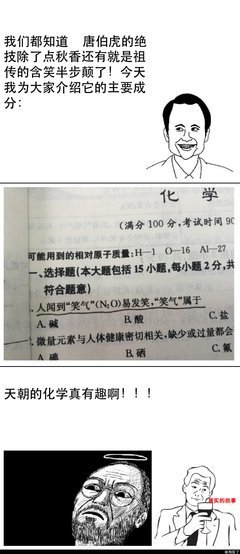 我们都知道 唐伯虎的绝
技除了点秋香还有就是祖
传的含笑半步颠了！今天
我为大家介绍它的主要成
分：
化 学
(满分 100 分,考试时间 90
可能用到的相对原子质量:H—1 O—16 Al—27
一、选择题(本大题包括 15 小题,每小题 2 分,共
符合题意)
.人闻到“笑气”(N₂O)易发笑,“笑气”属于
A. 碱 B. 酸 C. 盐
.微量元素与人体健康密切相关,缺少或过量都会
A. 碘 B. 硒 C. 氟
天朝的化学真有趣啊！！！
真实的故事